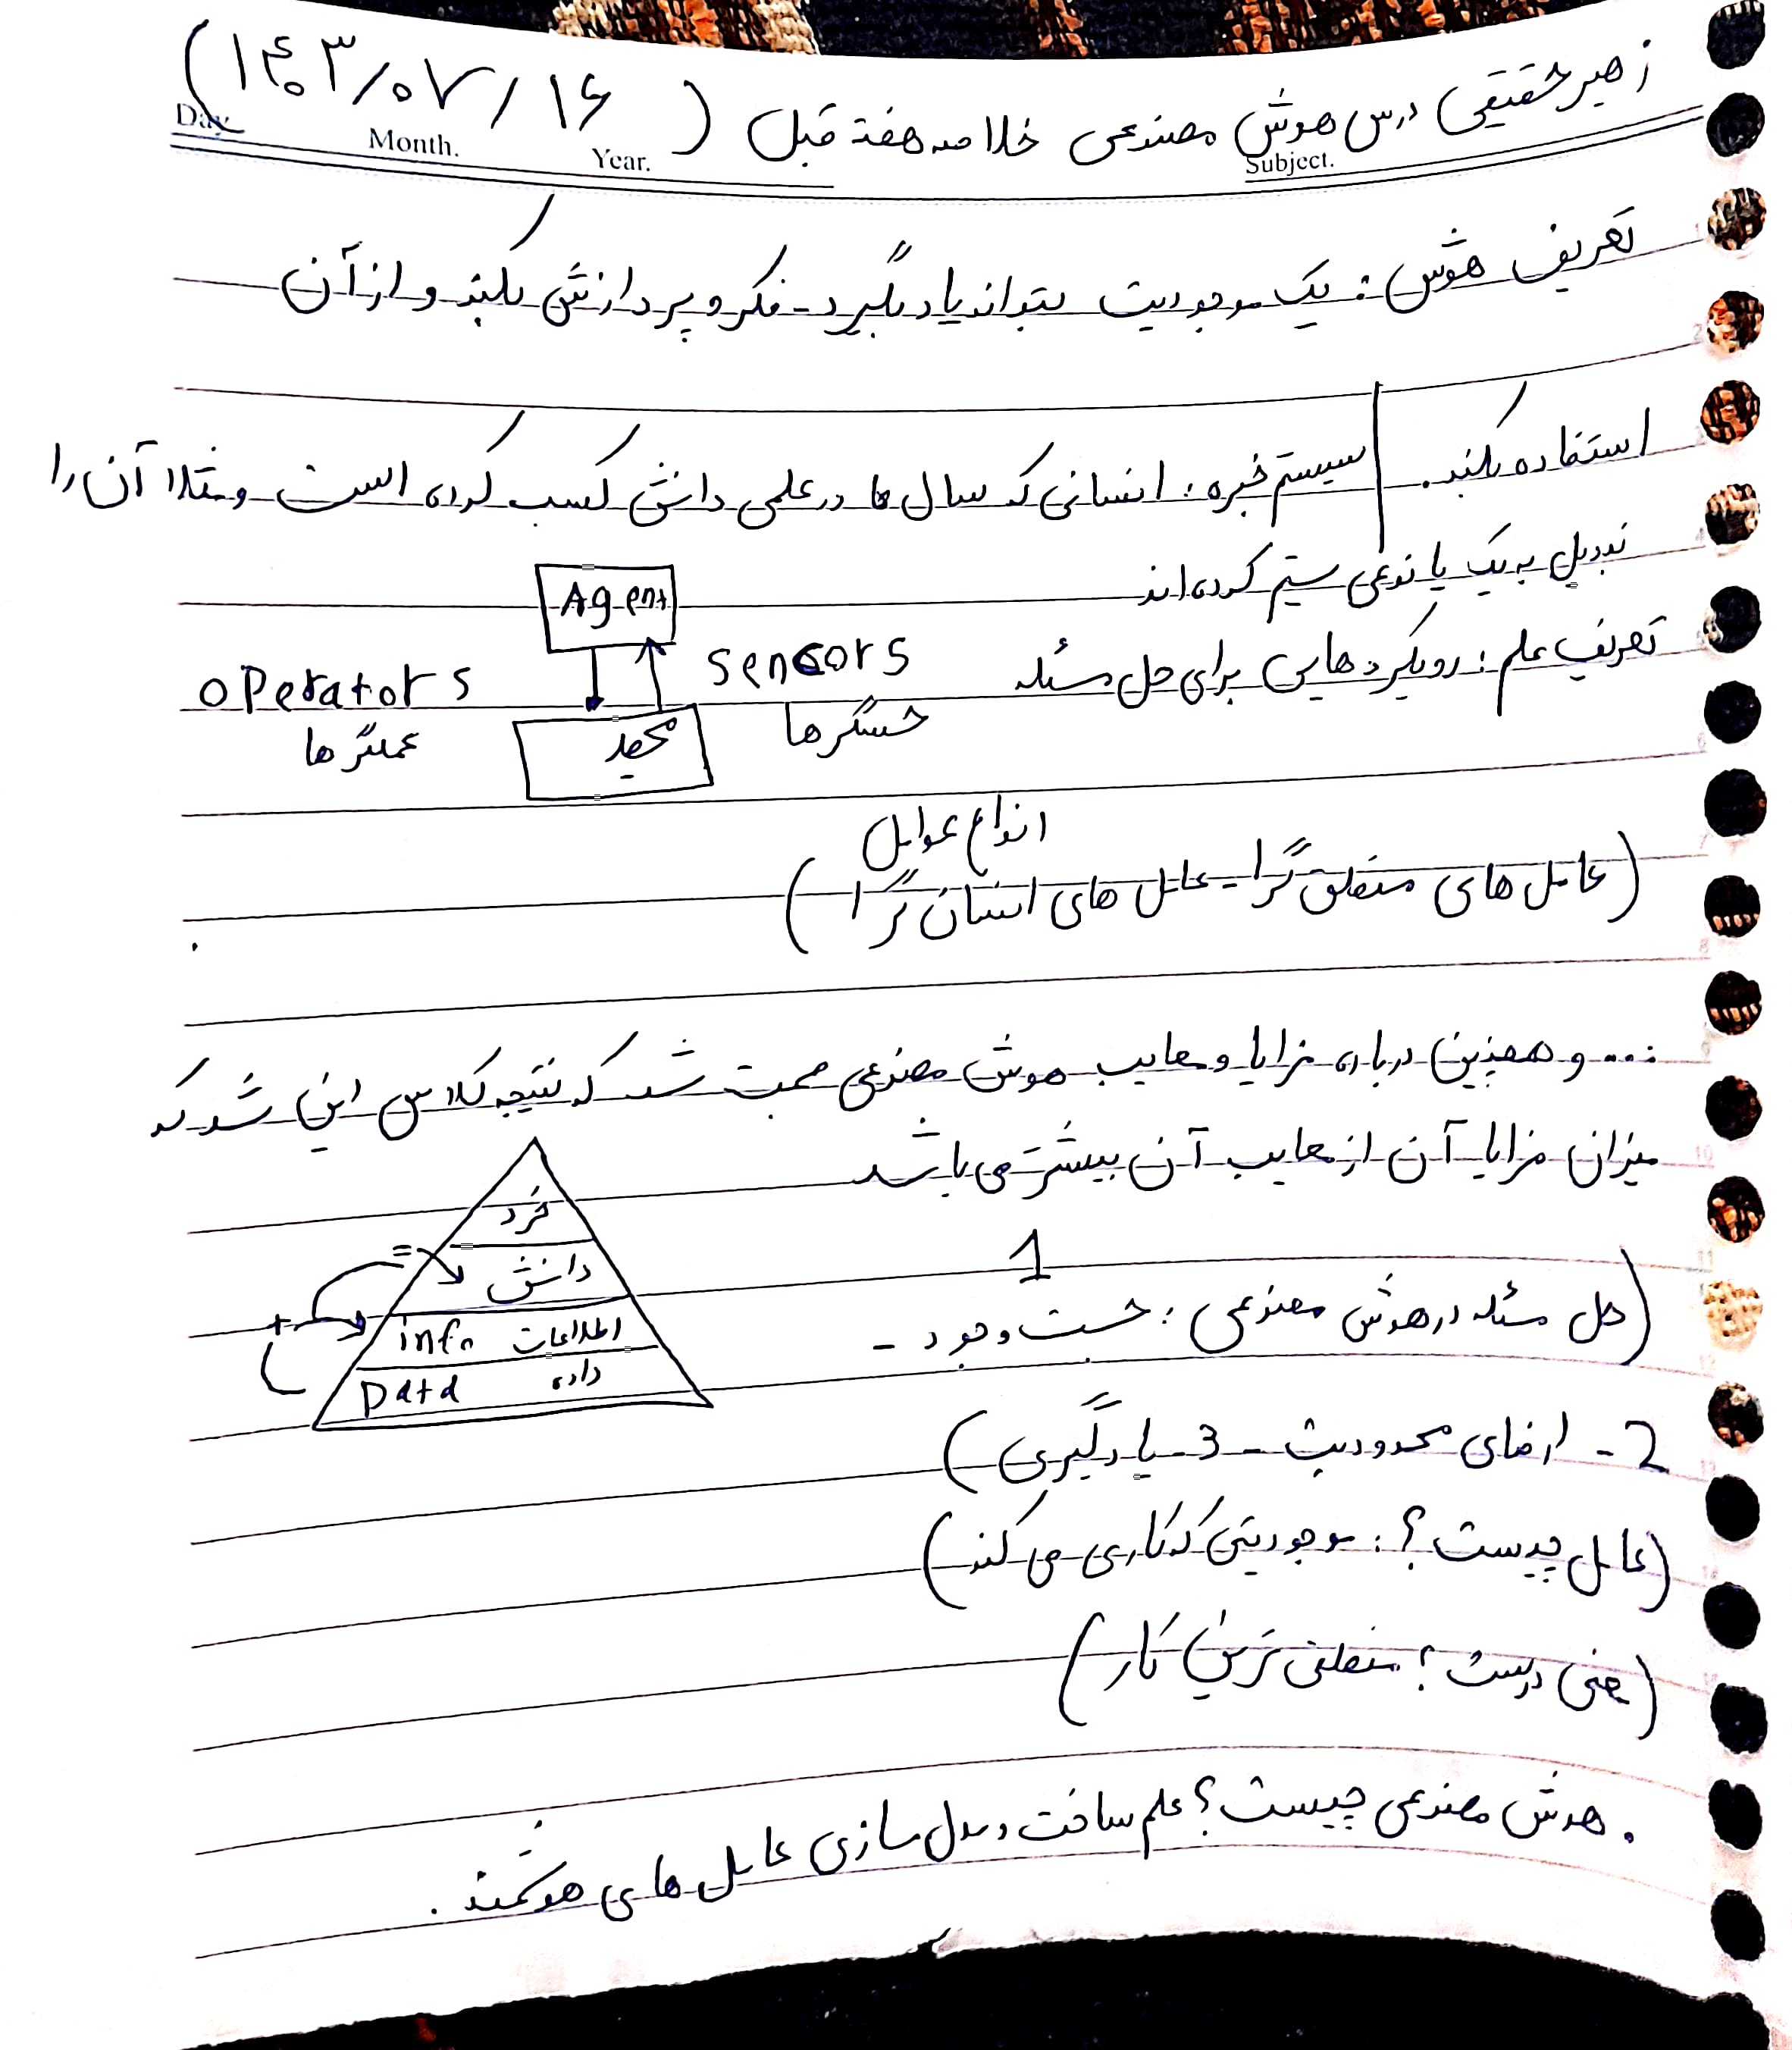 زهیر حقیقی درس هوش مصنوعی خلاصه هفته قبل (۱۴۰۳/۰۷/۱۶)
Subject. Year. Month. Day
تعریف هوش : یک موجودیت بتواند یاد بگیرد - فکر و پردازش بکند و از آن
استفاده بکند. سیستم خبره : انسانی که سال ها در علمی دانش کسب کرده است و مثلا آن را
تبدیل به یک یا نوعی ستیم کرده اند
تعریف علم : رویکردهایی برای حل مسئله
Agent
sensors
حسگرها
operators
عملگرها
محیط
انواع عوامل
(عامل های منطق گرا - عامل های انسان گرا)
... و همچنین درباره مزایا و معایب هوش مصنوعی صحبت شد که نتیجه کلاس این شد که
میزان مزایا آن از معایب آن بیشتر می باشد
خرد
= دانش
+ info اطلاعات
Data داده
1
(حل مسئله در هوش مصنوعی : جست و جو د -
2 - ارضای محدودیت - 3 - یادگیری)
(عامل چیست ؟ : موجودیتی که کاری می کند)
(یعنی درست ؟ منطقی ترین کار)
. هوش مصنوعی چیست ؟ علم ساخت و مدل سازی عامل های هوشمند .